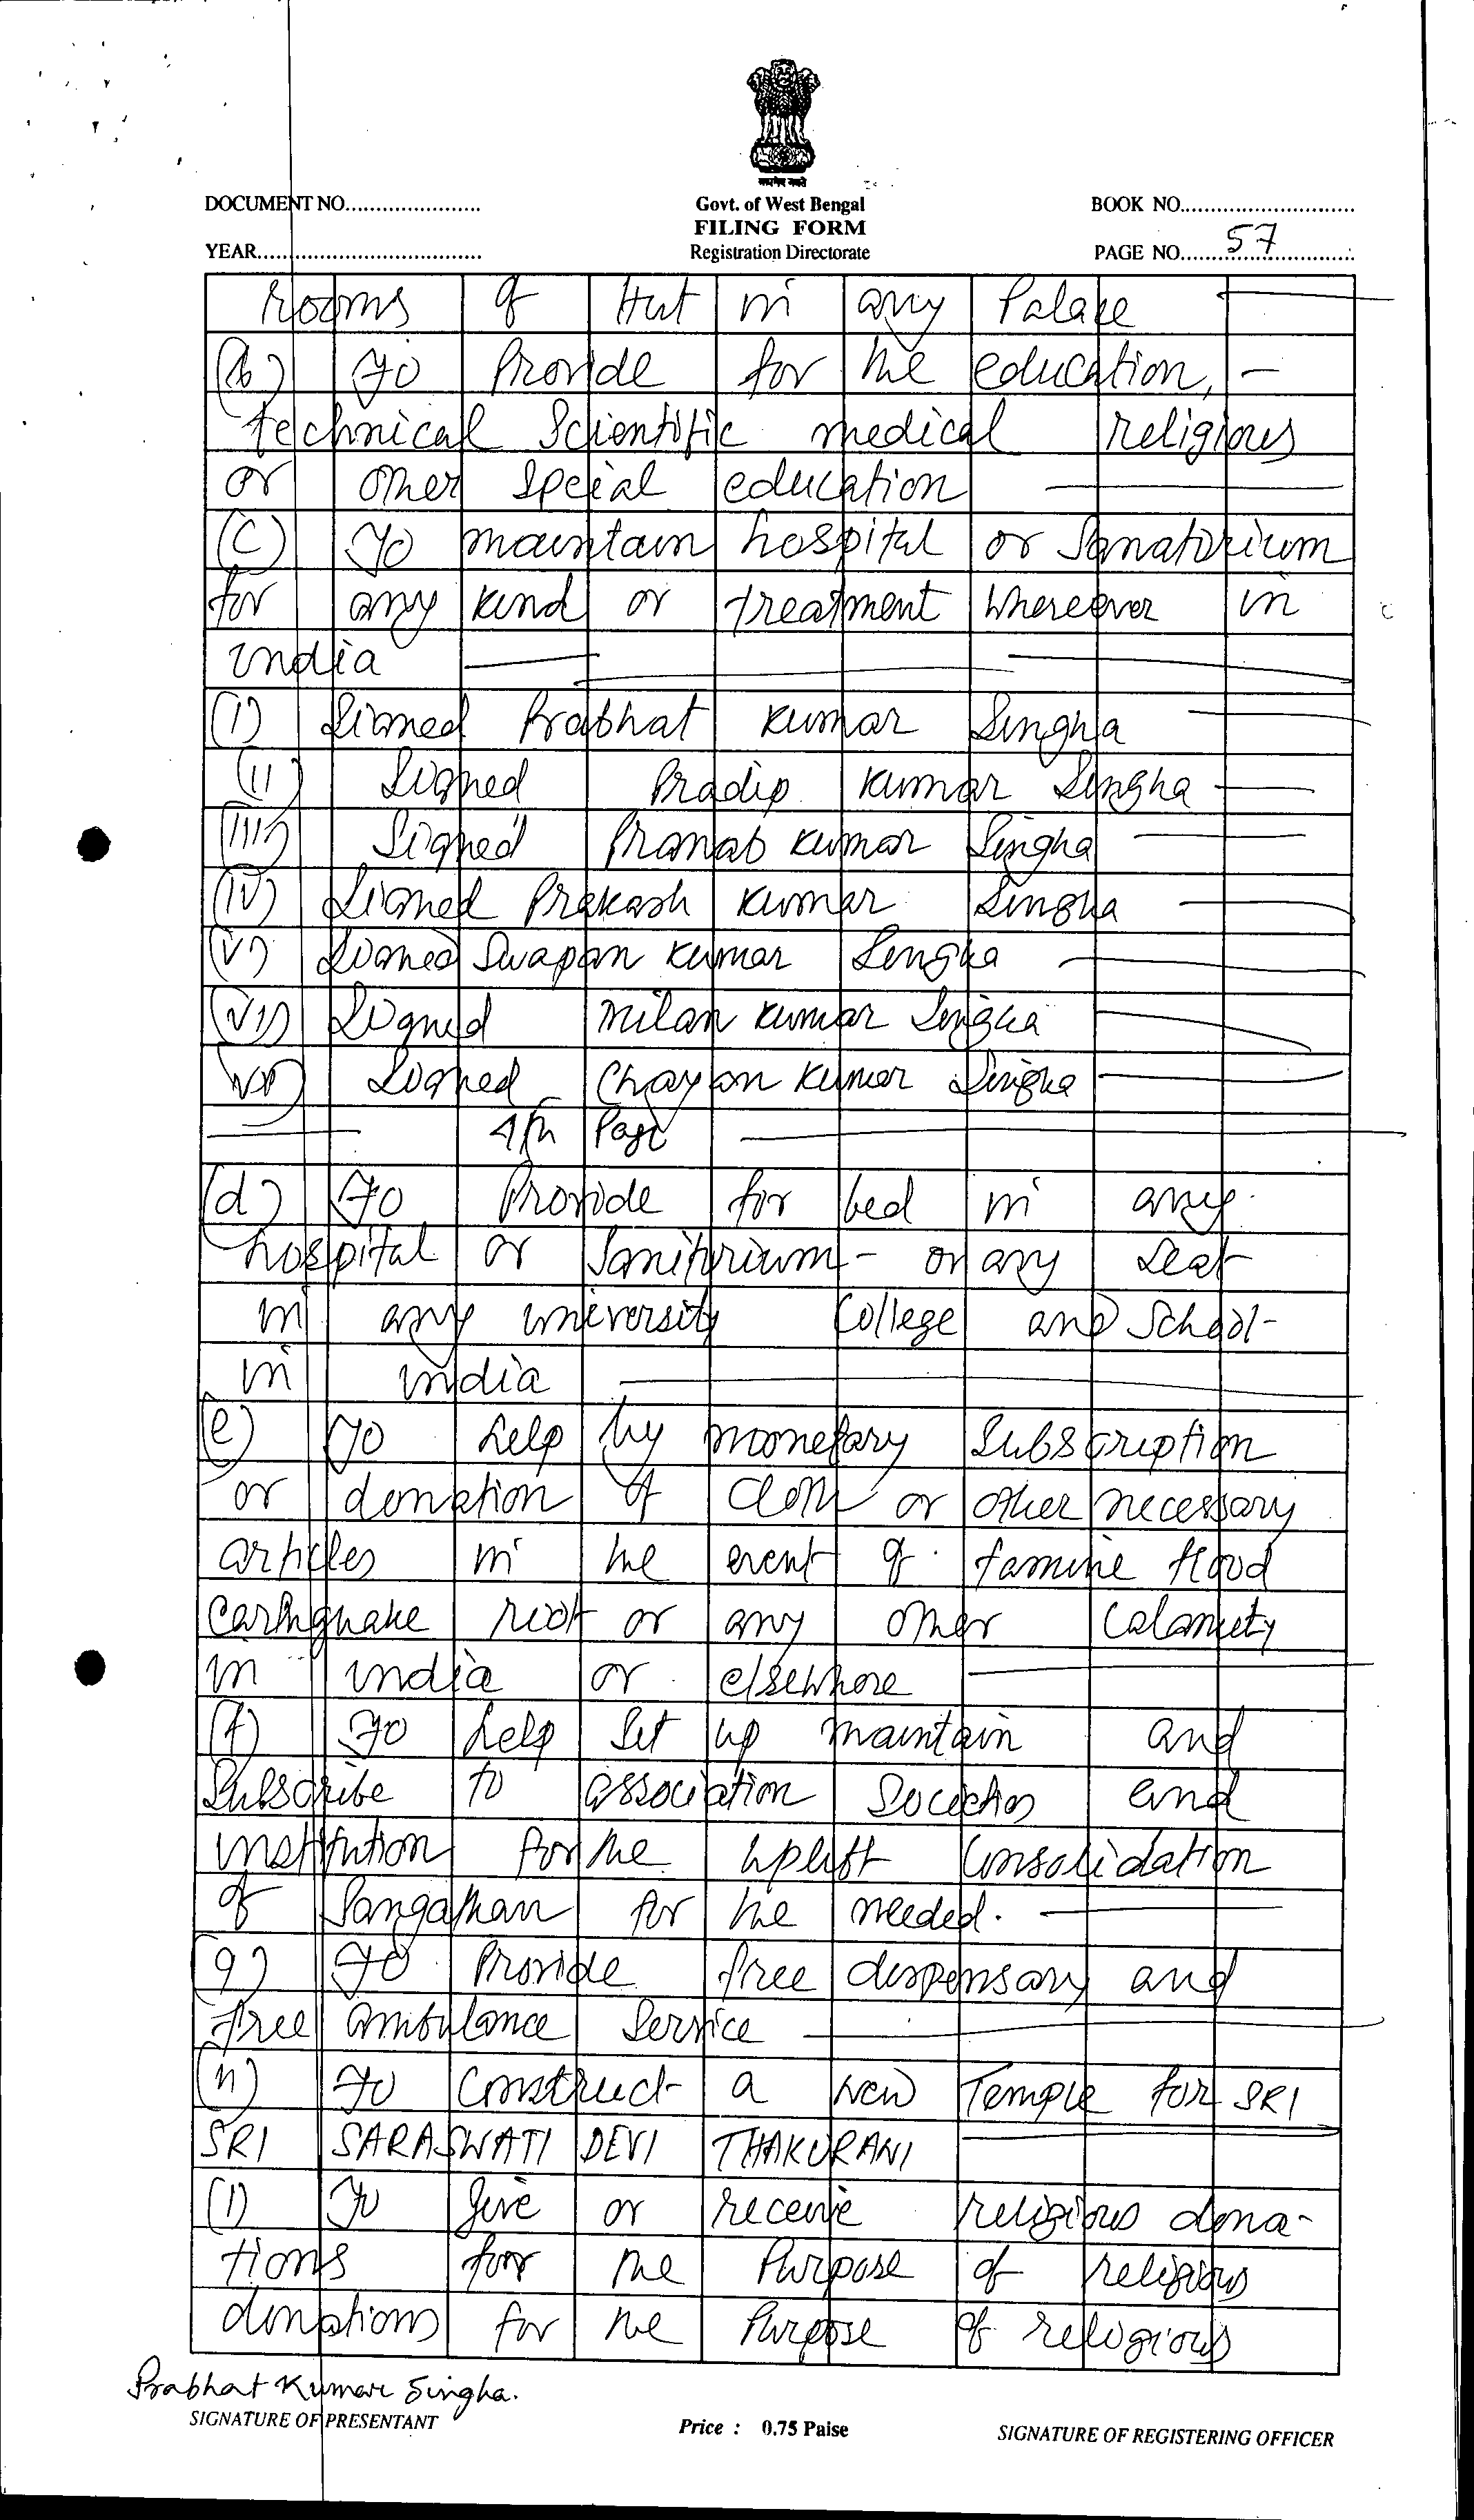 सत्यमेव जयते
DOCUMENT NO.......................
Govt. of West Bengal
BOOK NO.............................
FILING FORM
YEAR......................................
Registration Directorate
PAGE NO...... 57
rooms of Hut in any Palace
(b) To Provide for the education, -
technical Scientific medical religious
or other Special education
(c) To maintain hospital or Sanatorium
for any kind or treatment whereever in
india
(i) Signed Prabhat Kumar Singha
(ii) Signed Pradip Kumar Singha
(iii) Signed Pranab Kumar Singha
(iv) Signed Prakash Kumar Singha
(v) Signed Swapan Kumar Singha
(vi) Signed Milan Kumar Singha
(vii) Signed Chayan Kumar Singha
4th Page
(d) To Provide for bed in any
hospital or Sanitorium - or any Seat
in any university College and School-
in india
(e) To help by monetary Subscription
or donation of cloth or other necessary
articles in the event of famine flood
earthquake riot or any other Calamity
in india or elsewhere
(f) To help Set up maintain and
Subscribe to association Societies and
institution for the uplift Consolidation
of Sangathan for the needed.
(g) To Provide free dispensary and
free ambulance Service
(h) To Construct a New Temple for SRI
SRI SARASWATI DEVI THAKURANI
(i) To give or receive religious dona-
tions for the Purpose of religious
donations for the Purpose of religious
Prabhat Kumar Singha.
SIGNATURE OF PRESENTANT
Price : 0.75 Paise
SIGNATURE OF REGISTERING OFFICER